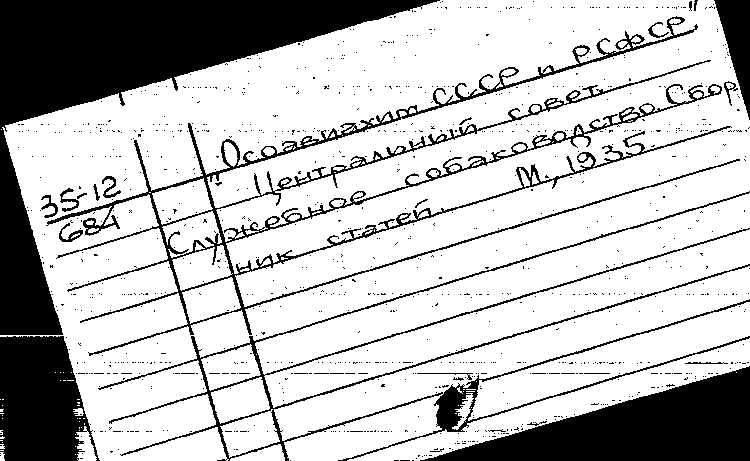 35-12
684
"Осоавиахим СССР и РСФСР"
Центральный совет.
Служебное собаководство. Сбор
ник статей. М., 1935.